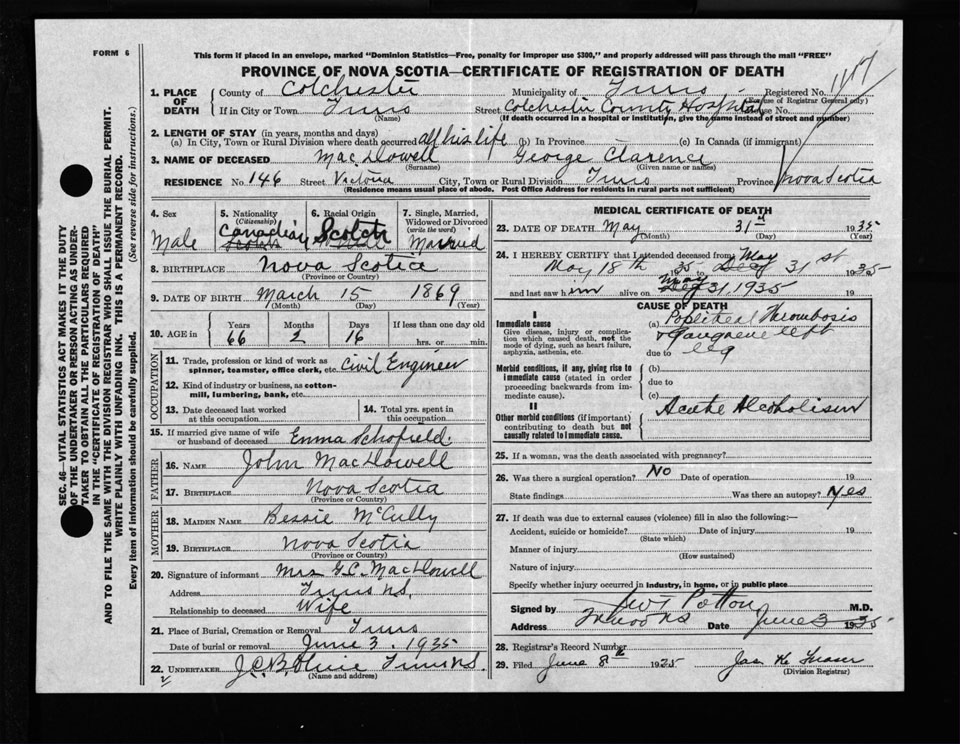 FORM 6
This form if placed in an envelope, marked "Dominion Statistics—Free, penalty for improper use $300," and properly addressed will pass through the mail "FREE"
PROVINCE OF NOVA SCOTIA—CERTIFICATE OF REGISTRATION OF DEATH
1. PLACE OF DEATH
County of Colchester Municipality of Truro Registered No.
(For use of Registrar General only)
If in City or Town Truro Street Colchester County Hospital House No.
(Name) (If death occurred in a hospital or institution, give the name instead of street and number)
2. LENGTH OF STAY (in years, months and days)
(a) In City, Town or Rural Division where death occurred all his life (b) In Province (c) In Canada (if immigrant)
3. NAME OF DECEASED MacDowell George Clarence
(Surname) (Given name or names)
RESIDENCE No. 146 Street Victoria City, Town or Rural Division Truro Province Nova Scotia
(Residence means usual place of abode. Post Office Address for residents in rural parts not sufficient)
4. Sex
Male
5. Nationality
(Citizenship)
Canadian
6. Racial Origin
Scotch
7. Single, Married, Widowed or Divorced
(write the word)
Married
8. BIRTHPLACE Nova Scotia
(Province or Country)
9. DATE OF BIRTH March 15 1869
(Month) (Day) (Year)
10. AGE in Years Months Days If less than one day old
66 2 16 hrs. or min.
OCCUPATION
11. Trade, profession or kind of work as spinner, teamster, office clerk, etc. Civil Engineer
12. Kind of industry or business, as cotton-mill, lumbering, bank, etc.
13. Date deceased last worked at this occupation
14. Total yrs. spent in this occupation
15. If married give name of wife or husband of deceased Emma Schofield.
FATHER
16. NAME John MacDowell
17. BIRTHPLACE Nova Scotia
(Province or Country)
MOTHER
18. MAIDEN NAME Bessie McCully
19. BIRTHPLACE Nova Scotia
(Province or Country)
20. Signature of informant Mrs G.C. MacDowell
Address Truro N.S.
Relationship to deceased Wife
21. Place of Burial, Cremation or Removal Truro
Date of burial or removal June 3. 1935
22. UNDERTAKER Truro N.S.
(Name and address)
MEDICAL CERTIFICATE OF DEATH
23. DATE OF DEATH May 31st 1935
(Month) (Day) (Year)
24. I HEREBY CERTIFY that I attended deceased from
May 18th 35 to May 31st 1935
and last saw him alive on May 31, 1935 19
CAUSE OF DEATH
I
Immediate cause
Give disease, injury or complication which caused death, not the mode of dying, such as heart failure, asphyxia, asthenia, etc.
(a) Popliteal Thrombosis
& Gangrene left
due to leg
Morbid conditions, if any, giving rise to immediate cause (stated in order proceeding backwards from immediate cause).
(b)
due to
(c)
II
Other morbid conditions (if important) contributing to death but not causally related to immediate cause.
Acute Alcoholism
25. If a woman, was the death associated with pregnancy?
26. Was there a surgical operation? NO Date of operation 19
State findings Was there an autopsy? Yes
27. If death was due to external causes (violence) fill in also the following:—
Accident, suicide or homicide? Date of injury 19
(State which)
Manner of injury
(How sustained)
Nature of injury
Specify whether injury occurred in industry, in home, or in public place
Signed by Patton M.D.
Address Truro N S Date June 3 1935
28. Registrar's Record Number
29. Filed June 8th 1935 Jas K Fraser
(Division Registrar)
SEC. 46—VITAL STATISTICS ACT MAKES IT THE DUTY
OF THE UNDERTAKER OR PERSON ACTING AS UNDER-
TAKER TO OBTAIN ALL THE PARTICULARS REQUIRED
IN THE "CERTIFICATE OF REGISTRATION OF DEATH"
AND TO FILE THE SAME WITH THE DIVISION REGISTRAR WHO SHALL ISSUE THE BURIAL PERMIT.
WRITE PLAINLY WITH UNFADING INK. THIS IS A PERMANENT RECORD.
Every item of information should be carefully supplied. (See reverse side for instructions.)